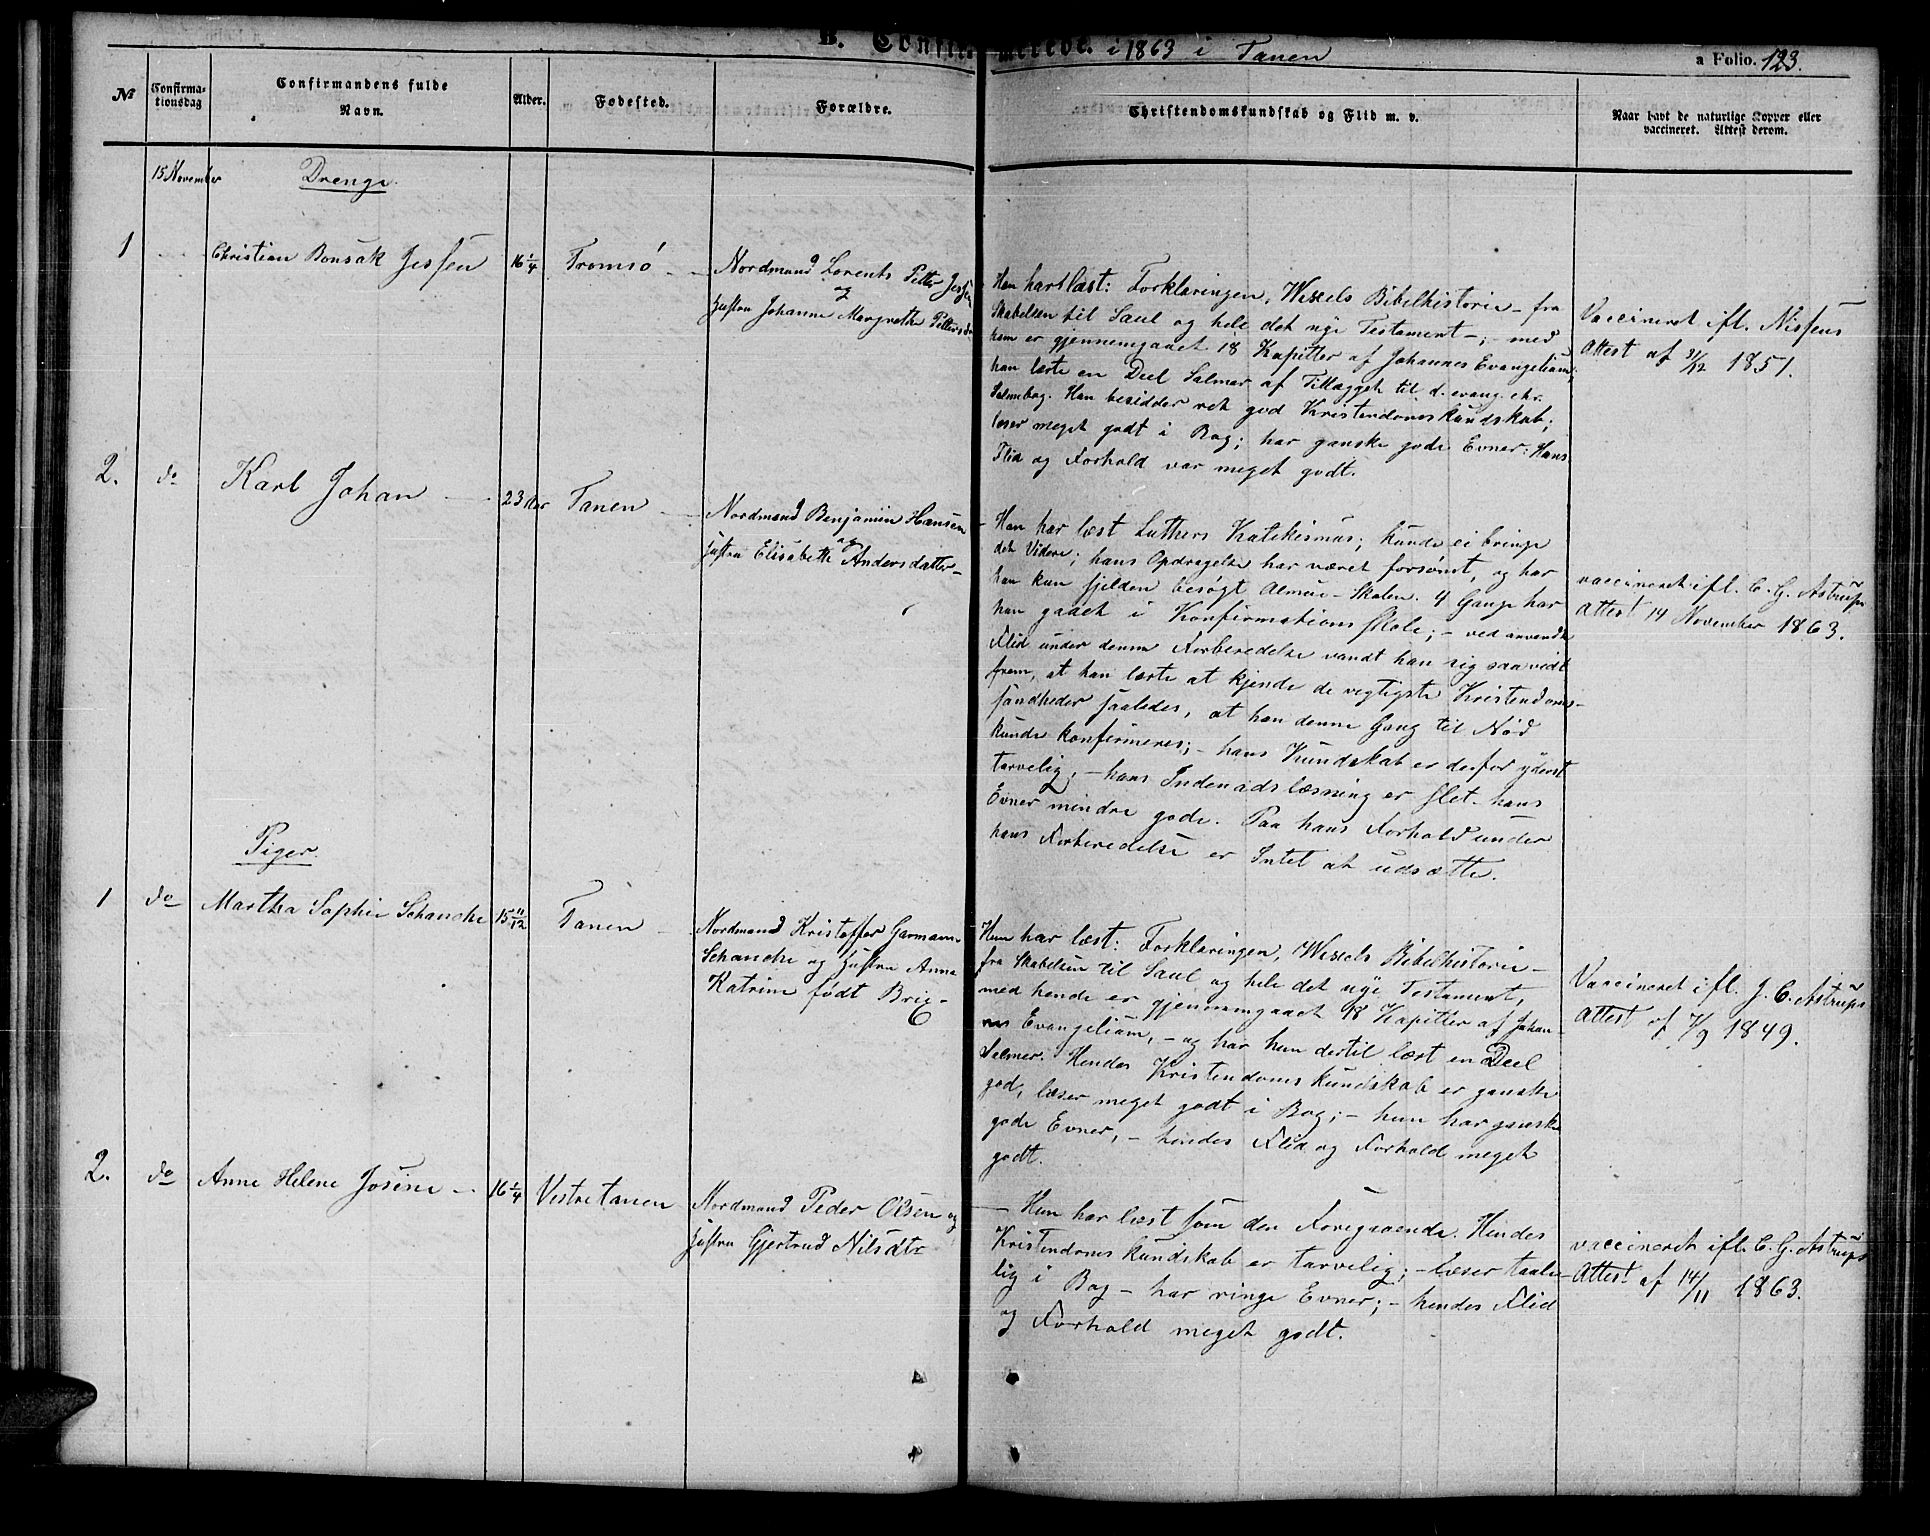 B. Confirmerede. i 1863 i Tanen
a Folio. 123.
№
Confirma-
tionsdag
Confirmandens fulde
Navn.
Alder.
Fødested.
Forældre.
Christendomskundskab og Flid m. v.
Naar havt de naturlige Kopper eller
vaccineret. Attest derom.
15 November
Drenge.
1
Christian Bonsak Jessen
16 1/4
Tromsø
Nordmand Lorents Petter Jessen
og
Hustru Johanne Margrethe Pettersd
Han har læst: Forklaringen, Wexels Bibelhistorie - fra
Skabelsen til Saul og hele det nye Testament -; - med
ham er gjennemgaaet 18 Kapitler af Johannes Evangelium;
han lærte en Deel Salmer af Tillægget til d. evang. chr.
Salmebog. Han besidder ret god Kristendomskundskab;
læser meget godt i Bog; har ganske gode Evner: Hans
Flid og Forhold var meget godt.
Vaccineret ifl. Nissens
Attest af 31/12 1851.
2.
do
Karl Johan
23 Aar
Tanen
Nordmand Benjamin Hansen
og
Hustru Elisabeth Andersdatter -
Han har læst Luthers Katekismus; kunde ei bringe
det Videre; hans Opdragelse har været forsømt, og har
han kun sjelden besøgt Almue-Skolen. 4 Gange har
han gaaet i Konfirmationsskole; - ved anvendt
Flid under denne Forberedelse vandt han sig saavidt
frem, at han lærte at kjende de vegtigste Kristendoms-
sandheder saaledes, at han denne Gang til Nød
kunde konfirmeres; - hans Kundskab er derfor yderst
tarvelig, - hans Indenadslæsning er slet - hans
Evner mindre gode. Paa hans Forhold under
hans Forberedelse er Intet at udsætte.
vaccineret ifl. C. G. Astrups
Attest 14 November 1863.
Piger.
1
do
Martha Sophie Schanche
15 11/12
Tanen
Nordmand Kristoffer Garmann
Schanche og Hustru Anna
Katrine født Brix -
Hun har læst: Forklaringen, Wexels Bibelhistorie -
fra Skabelsen til Saul og hele det nye Testament,
med hende er gjennemgaaet 18 Kapitler af Johan-
nes Evangelium, - og har hun dertil læst en Deel
Salmer. Hendes Kristendomskundskab er ganske
god, læser meget godt i Bog; - hun har ganske
gode Evner, - hendes Flid og Forhold meget
godt.
Vaccineret ifl. J. C. Astrups
Attest af 7/9 1849.
2.
do
Anne Helene Josine
16 1/4
Vestretanen
Nordmand Peder Olsen og
Hustru Gjertrud Nilsdtr
- Hun har læst som den Foregaaende. Hendes
Kristendomskundskab er tarvelig; - læser taale-
lig i Bog - har ringe Evner; - hendes Flid
og Forhold meget godt.
vaccineret ifl. C. G. Astrups
Attest af 14/11 1863.